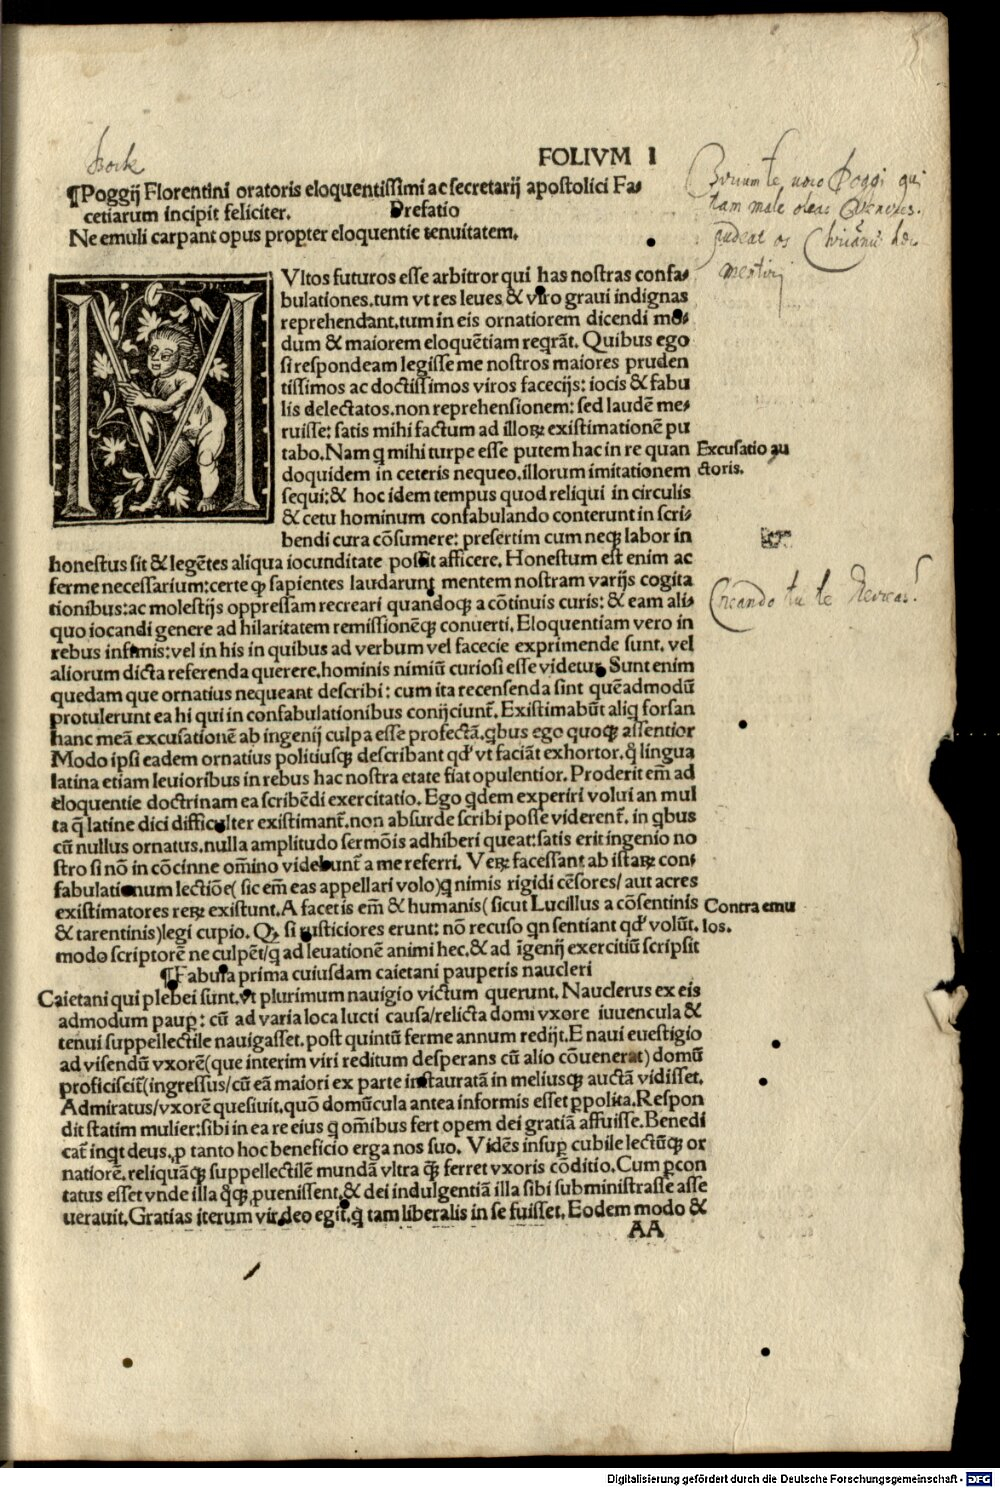 FOLIVM I
¶Poggij Florentini oratoris eloquentissimi ac secretarij apostolici Fa⸗
cetiarum incipit feliciter. Prefatio
Ne emuli carpant opus propter eloquentie tenuitatem.
MVltos futuros esse arbitror qui has nostras confa⸗
bulationes.tum vt res leues & viro graui indignas
reprehendant.tum in eis ornatiorem dicendi mo⸗
dum & maiorem eloquētiam reqrāt. Quibus ego
si respondeam legisse me nostros maiores pruden
tissimos ac doctissimos viros facecijs: iocis & fabu
lis delectatos.non reprehensionem: sed laudē me⸗
ruisse: satis mihi factum ad illoꝝ existimationē pu
tabo.Nam q̄ mihi turpe esse putem hac in re quan
doquidem in ceteris nequeo.illorum imitationem
sequi:& hoc idem tempus quod reliqui in circulis
& cetu hominum confabulando conterunt in scri⸗
bendi cura cōsumere: presertim cum neqꝫ labor in
Excusatio au
ctoris.
honestus sit & legētes aliqua iocunditate possit afficere. Honestum est enim ac
ferme necessarium:certe ꝙ sapientes laudarunt mentem nostram varijs cogita
tionibus:ac molestijs oppressam recreari quandoqꝫ a cōtinuis curis: & eam ali⸗
quo iocandi genere ad hilaritatem remissionēqꝫ conuerti. Eloquentiam vero in
rebus infimis:vel in his in quibus ad verbum vel facecie exprimende sunt. vel
aliorum dicta referenda querere.hominis nimiū curiosi esse videtur. Sunt enim
quedam que ornatius nequeant describi: cum ita recensenda sint quēadmodū
protulerunt ea hi qui in confabulationibus conijciunt̄. Existimabūt aliq forsan
hanc meā excusationē ab ingenij culpa esse profectā.qbus ego quoqꝫ assentior
Modo ipsi eadem ornatius politiusqꝫ describant qd' vt faciāt exhortor. q̄ lingua
latina etiam leuioribus in rebus hac nostra etate fiat opulentior. Proderit em̄ ad
eloquentie doctrinam ea scribēdi exercitatio. Ego qdem experiri volui an mul
ta q̄ latine dici difficulter existimant̄.non absurde scribi posse viderent̄. in qbus
cū nullus ornatus.nulla amplitudo sermōis adhiberi queat:satis erit ingenio no
stro si nō in cōcinne om̄ino videbunt̄ a me referri. Veꝝ facessant ab istaꝝ con⸗
fabulationum lectiōe( sic em̄ eas appellari volo)q nimis rigidi cēsores/ aut acres
existimatores reꝝ existunt.A facetis em̄ & humanis( sicut Lucillus a cōsentinis
& tarentinis)legi cupio. Qꝫ si rusticiores erunt: nō recuso qn sentiant qd' volūt.
modo scriptorē ne culpēt/q ad leuationē animi hec.& ad īgenij exercitiū scripsit
Contra emu
los.
¶Fabula prima cuiusdam caietani pauperis naucleri
Caietani qui plebei sunt.vt plurimum nauigio victum querunt. Nauclerus ex eis
admodum paup̲: cū ad varia loca lucti causa/relicta domi vxore iuuencula &
tenui suppellectile nauigasset. post quintū ferme annum redijt. E naui euestigio
ad visendū vxorē(que interim viri reditum desperans cū alio cōuenerat) domū
proficiscit̄(ingressus/cū eā maiori ex parte instauratā in meliusqꝫ auctā vidisset.
Admiratus/vxorē quesiuit.quō domūcula antea informis esset ꝑpolita.Respon
dit statim mulier:sibi in ea re eius q om̄ibus fert opem dei gratiā affuisse. Benedi
cat̄ inqt deus.ꝓ tanto hoc beneficio erga nos suo. Vidēs insuꝑ cubile lectūqꝫ or
natiorē.reliquāqꝫ suppellectilē mundā vltra q̄ꝫ ferret vxoris cōditio.Cum ꝑcon
tatus esset vnde illa q̄qꝫ ꝓuenissent.& dei indulgentiā illa sibi subministrasse asse
uerauit.Gratias iterum vir deo egit.q̄ tam liberalis in se fuisset. Eodem modo &
AA
Digitalisierung gefördert durch die Deutsche Forschungsgemeinschaft - DFG